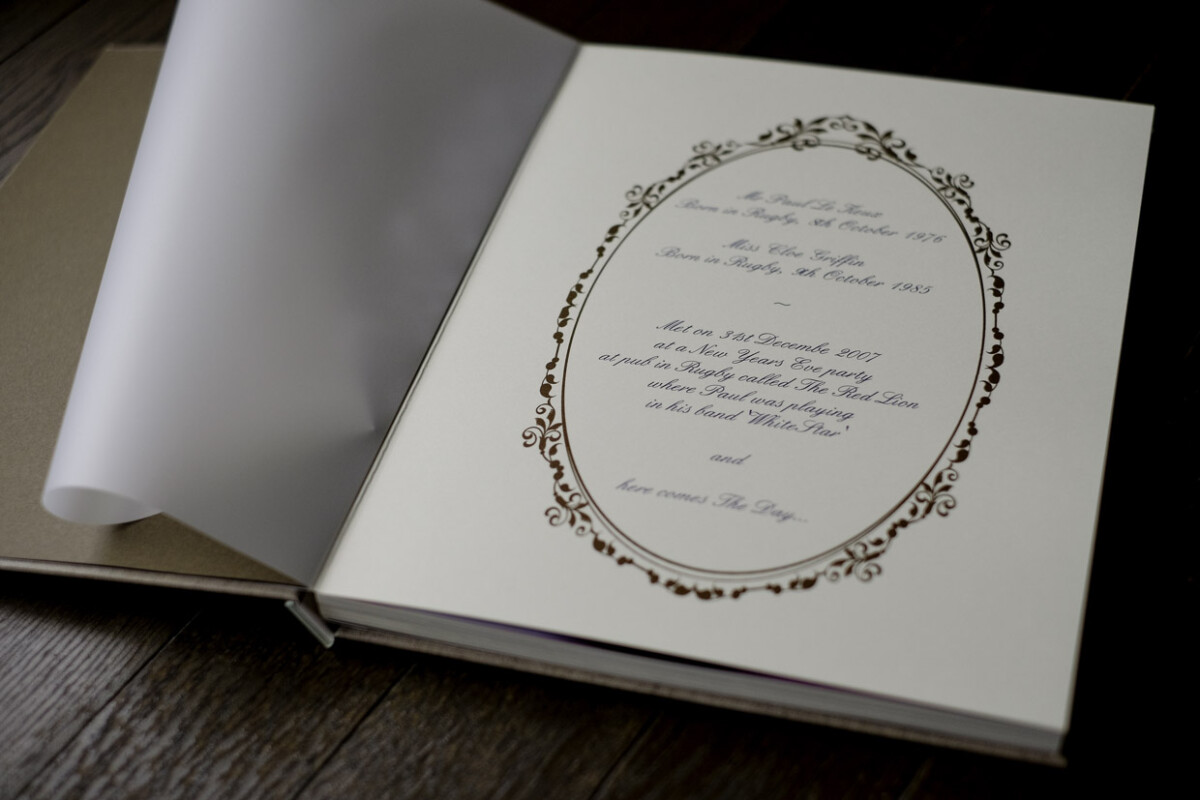 Mr Paul Le Roux
Born in Rugby, 8th October 1976
Miss Cloe Griffin
Born in Rugby, 9th October 1985
~
Met on 31st Decembe 2007
at a New Years Eve party
at pub in Rugby called The Red Lion
where Paul was playing
in his band `WhiteStar`
and
here comes The Day...